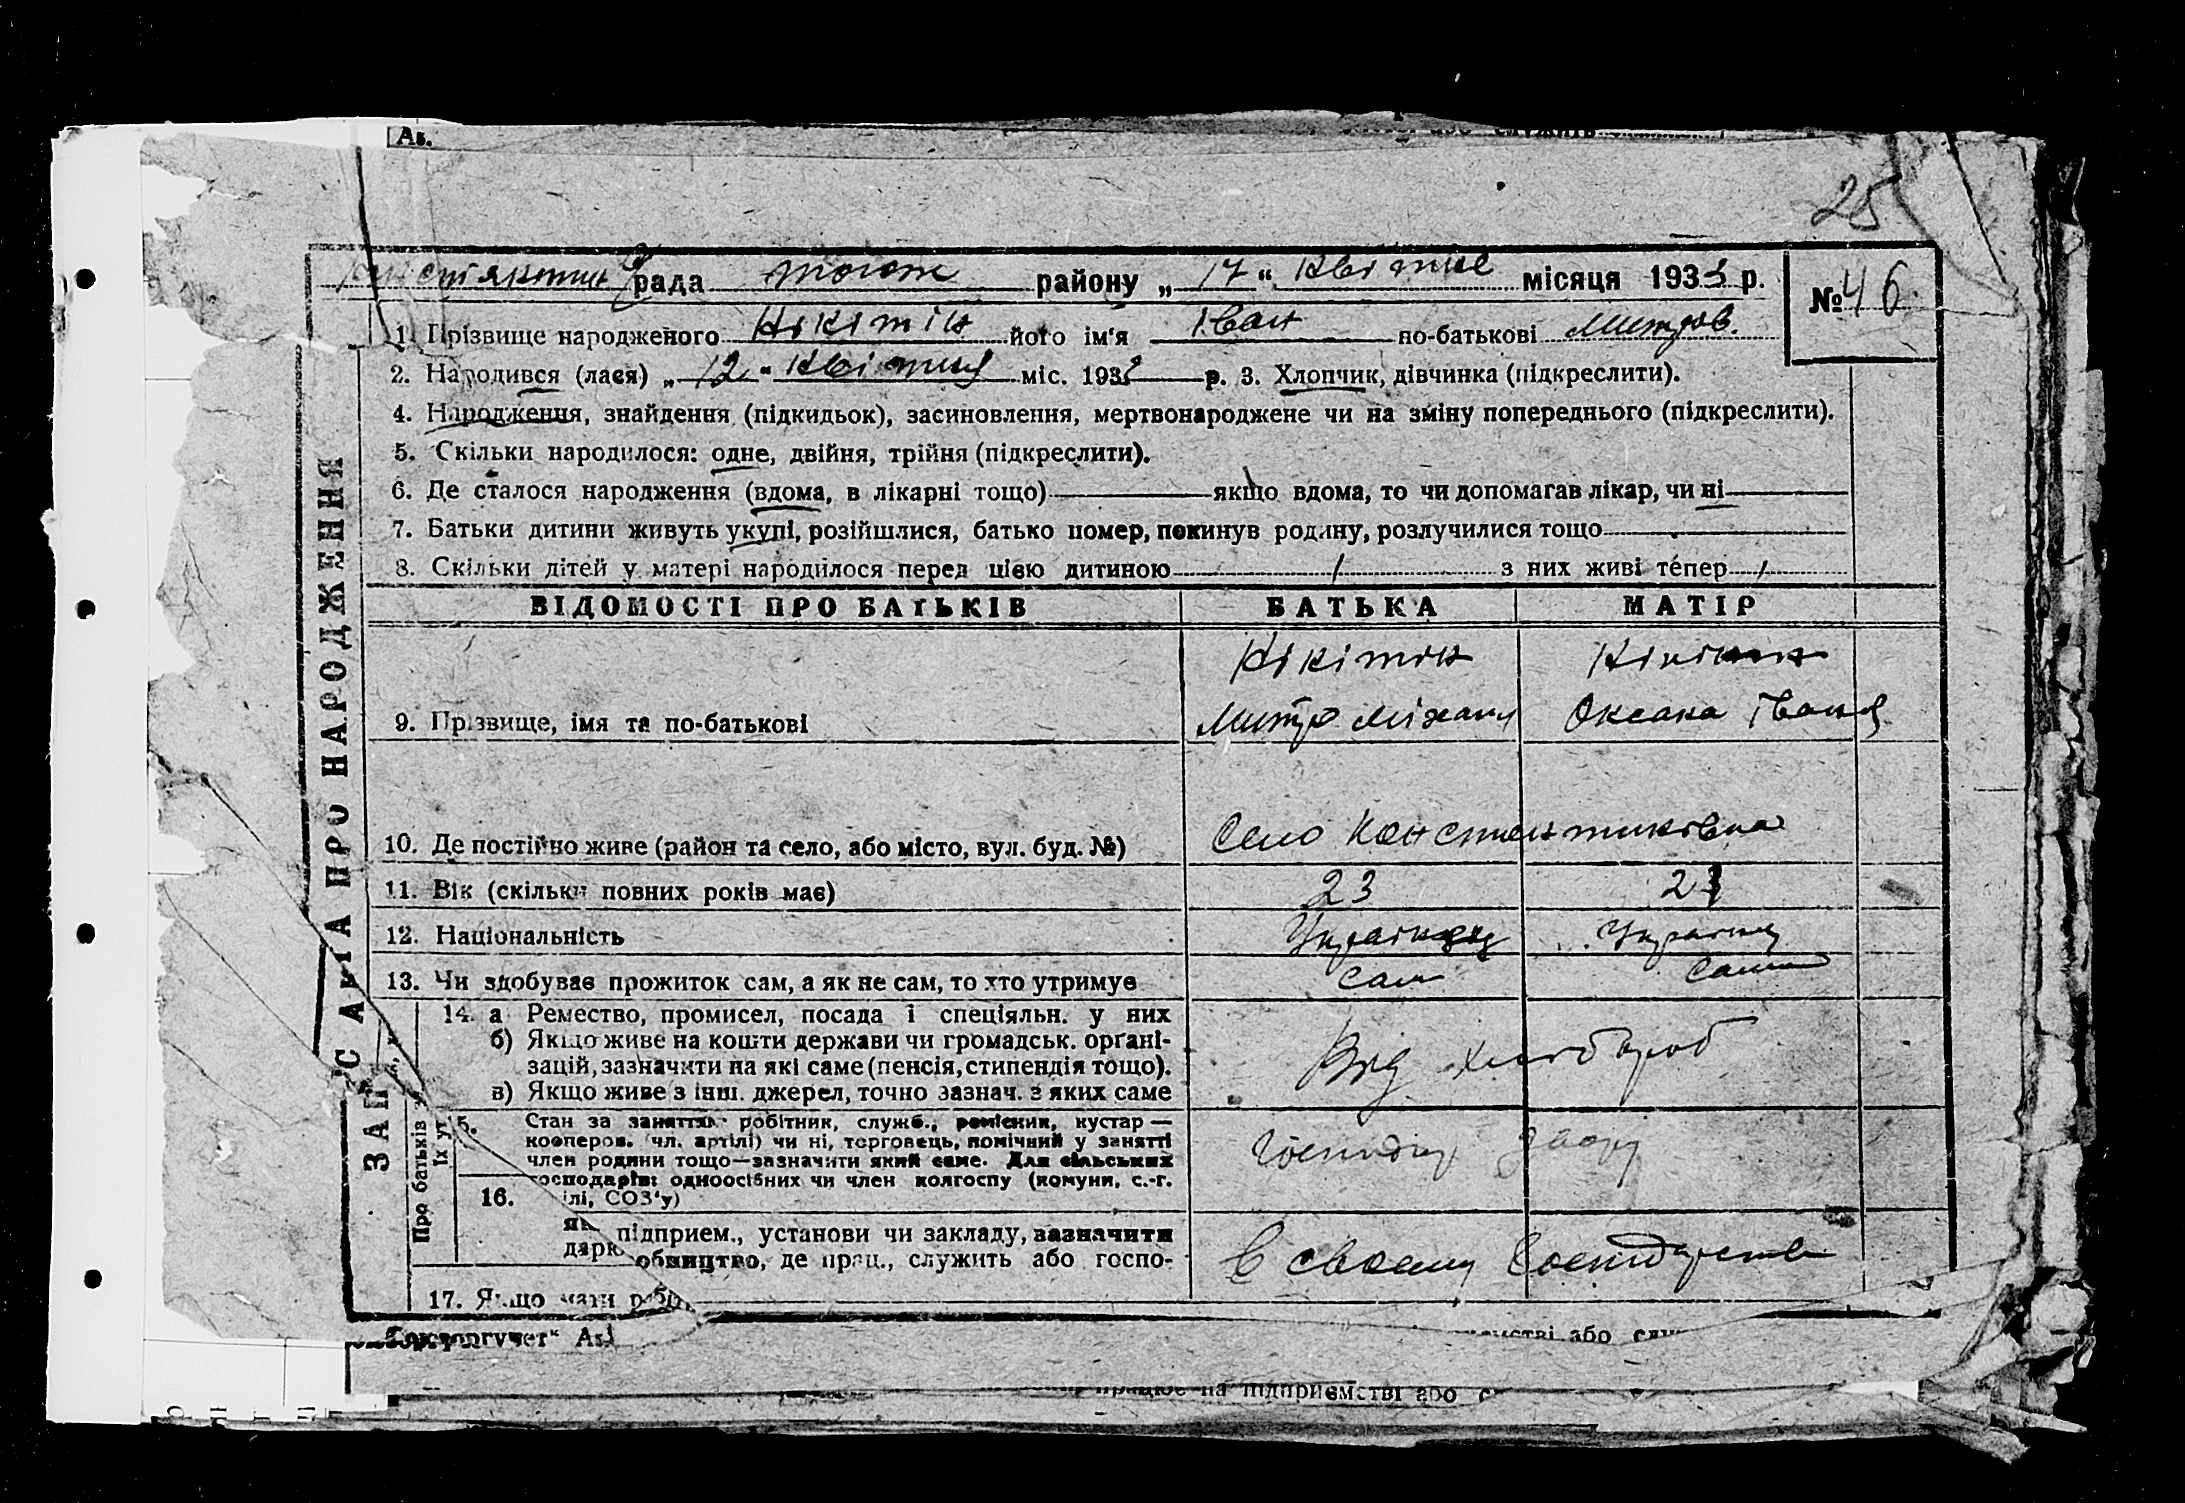 Аз.
25
рада район у „ 17 “ квітня місяця 1933 р.
№ 46
1. Прізвище народженого Нікітін його ім'я Іван по-батькові Митров.
2. Народився (лася) „ 12 “ квітня міс. 193 р. 3. Хлопчик, дівчинка (підкреслити).
4. Народження, знайдення (підкидьок), засиновлення, мертвонароджене чи на зміну попереднього (підкреслити).
5. Скільки народилося: одне, двійня, трійня (підкреслити).
6. Де сталося народження (вдома, в лікарні тощо) якщо вдома, то чи допомагав лікар, чи ні
7. Батьки дитини живуть укупі, розійшлися, батько помер, покинув родину, розлучилися тощо
8. Скільки дітей у матері народилося перед цією дитиною 1 з них живі тепер 1
ЗАПИС АКТА ПРО НАРОДЖЕННЯ
ВІДОМОСТІ ПРО БАТЬКІВ БАТЬКА МАТІР
Нікітін
9. Прізвище, імя та по-батькові Митро Оксана Іванів
10. Де постійно живе (район та село, або місто, вул. буд. №) Село Константинівка
11. Вік (скільки повних років має) 23
12. Національність
13. Чи здобуває прожиток сам, а як не сам, то хто утримує сам сама
14. а Ремество, промисел, посада і спеціяльн. у них
б) Якщо живе на кошти держави чи громадськ. органі-
зацій, зазначити на які саме (пенсія, стипендія тощо).
в) Якщо живе з інш. джерел, точно зазнач. з яких саме
Від хлібороб
Про батьків
їх ут
5. Стан за заняттям: робітник, служб., ремісник, кустар —
кооперов. (чл. артілі) чи ні, торговець, помічний у занятті
член родини тощо—зазначити який саме. Для сільських
господарів: одноосібних чи член колгоспу (комуни, с.-г.
16. ілі, СОЗ'у)
підприєм., установи чи закладу, зазначити
дарю обництво, де прац., служить або госпо-
в своему
17. Якщо мати робі
Аз.
або
працює на підприємстві або с